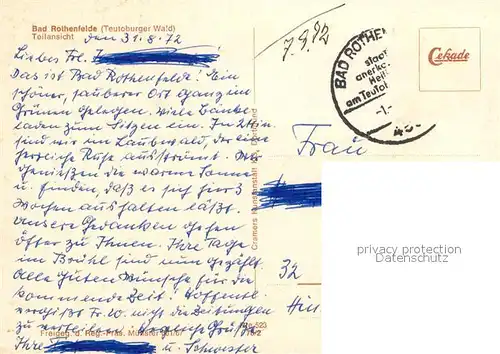 Bad Rothenfelde (Teutoburger Wald)
Teilansicht
den 31.8.72
Liebes Frl.
Das ist Bad Rothenfelde! Ein
schöner, sauberer Ort ganz im
Grünen gelegen. Viele Bänke
laden zum Sitzen ein. In 2 Min.
sind wir im Laubwald, der eine
herrliche Ruhe ausströmt. Wir
genießen die warme Sonne
u. finden, daß es sich hier 3
Wochen aushalten läßt.
Unsere Gedanken gehen
öfter zu Ihnen. Ihre Tage
im Brühl sind nun gezählt.
Alle guten Wünsche für die
kommende Zeit! Hoffentl.
vergißt Fr. W. nicht die Zeitungen
zu verteilen. Grüße
Ihre
u. Schwester
Freigeg. d. Reg.-Präs. Münster
Cramers Kunstanstalt Dortmund
7.9.72
BAD ROTHE
staat
anerk.
Heil
am Teuto
-1.-
Cekade
Frau
privacy protection
Datenschutz
32
Hin